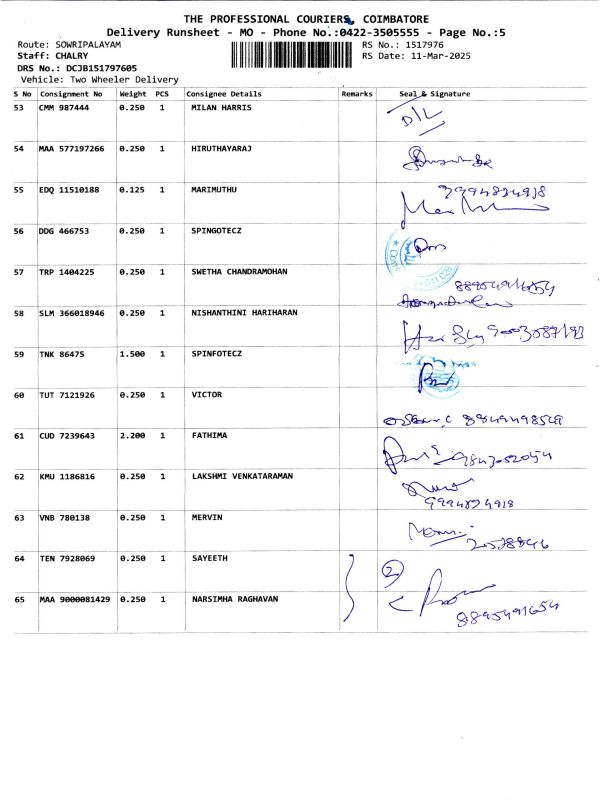 THE PROFESSIONAL COURIERS, COIMBATORE
Delivery Runsheet - MO - Phone No.:0422-3505555 - Page No.:5
Route: SOWRIPALAYAM RS No.: 1517976
Staff: CHALRY RS Date: 11-Mar-2025
DRS No.: DCJB151797605
Vehicle: Two Wheeler Delivery
S No Consignment No Weight PCS Consignee Details Remarks Seal & Signature
53 CMM 987444 0.250 1 MILAN HARRIS D/L
54 MAA 577197266 0.250 1 HIRUTHAYARAJ
55 EDQ 11510188 0.125 1 MARIMUTHU
56 DDG 466753 0.250 1 SPINGOTECZ
57 TRP 1404225 0.250 1 SWETHA CHANDRAMOHAN
58 SLM 366018946 0.250 1 NISHANTHINI HARIHARAN
59 TNK 86475 1.500 1 SPINFOTECZ
60 TUT 7121926 0.250 1 VICTOR
61 CUD 7239643 2.200 1 FATHIMA
62 KMU 1186816 0.250 1 LAKSHMI VENKATARAMAN
63 VNB 780138 0.250 1 MERVIN
64 TEN 7928069 0.250 1 SAYEETH 2
65 MAA 9000081429 0.250 1 NARSIMHA RAGHAVAN